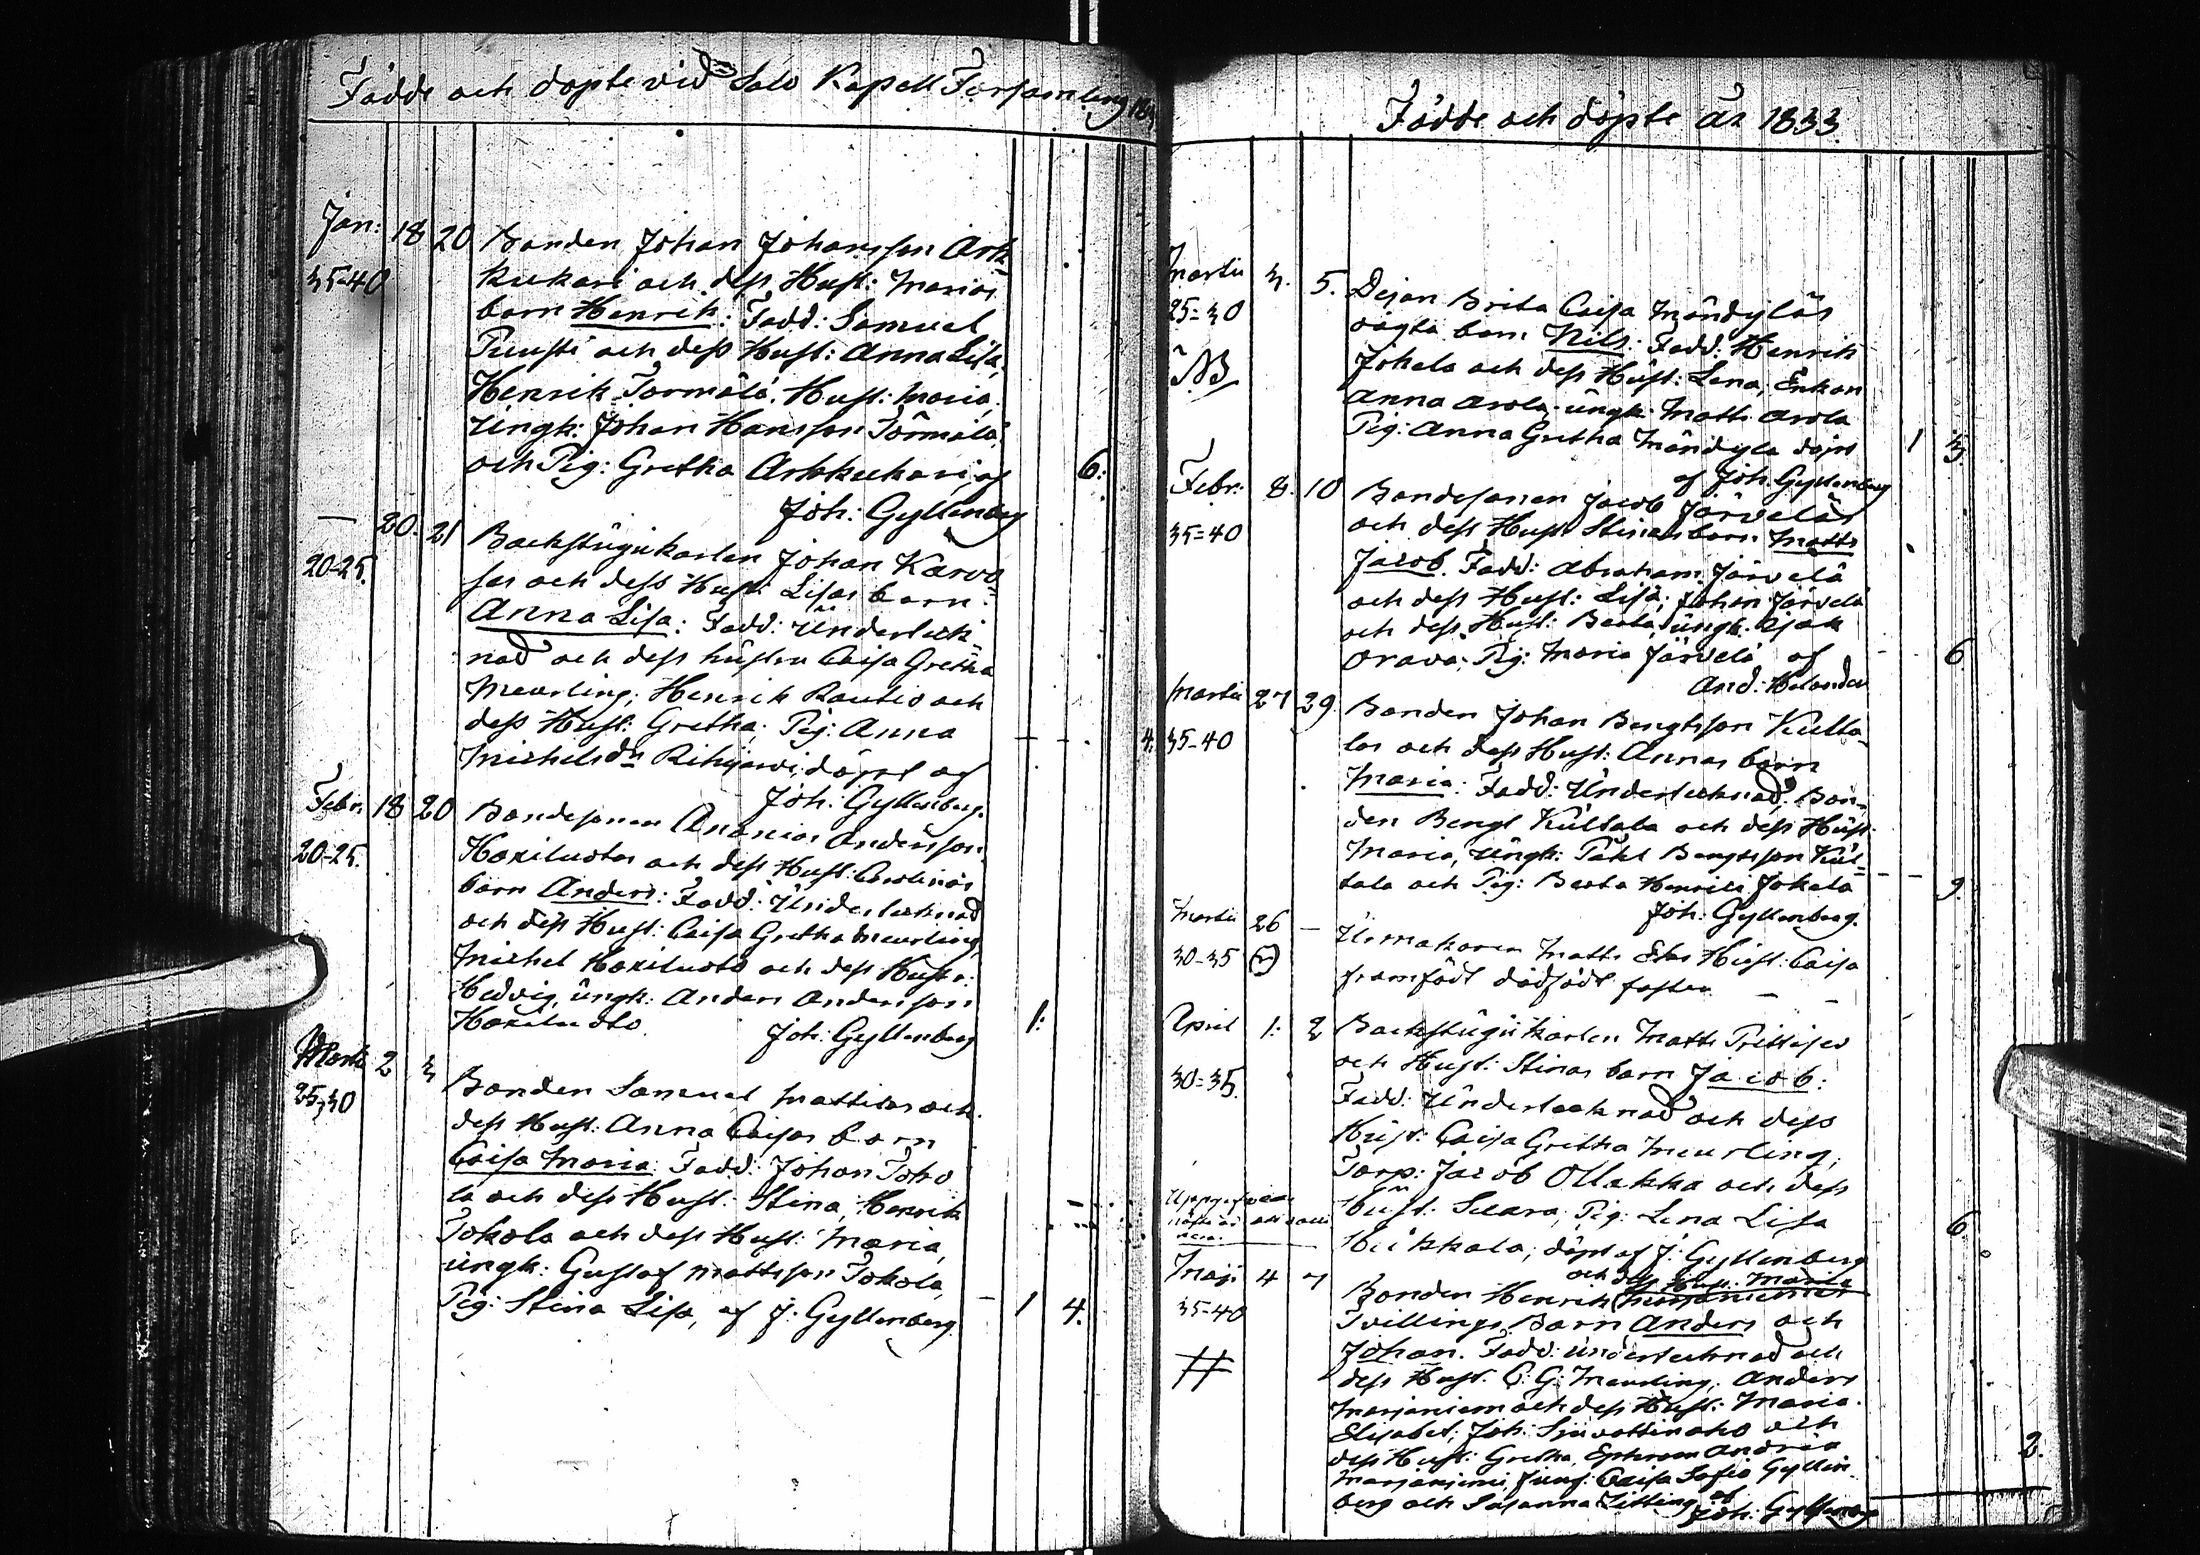 Födde och döpte vid Salo Kapell Församling 183
Jan: 18 20 Bonden Johan Johansson Ark-
35-40 kukari och dess Hust: Marias
barn Henrik: Fadd: Samuel
Puusti och dess Hust: Anna Lisa,
Henrik Tormälä, Hust: Maria,
Ungk: Johan Hansson Tormälä
och Pig: Gretha Arkkukari, af 6:
Joh: Gyllenberg
— 20. 21 Backstugukarlen Johan Karvo-
20-25. sas och dess Hust: Lisas barn:
Anna Lisa: Fadd: Underteck-
nad och dess hustru Caisa Gretha
Meurling; Henrik Rautio och
dess Hust: Gretha; Pig: Anna
Michelsdr Rihijärvi, döpt af 4.
Joh: Gyllenberg.
Febr: 18 20 Bondesonen Ananias Andersson
20-25. Hoxiluotos och dess Hust: Carolinas
barn Anders: Fadd: Undertecknad
och dess Hust: Caisa Gretha Meurling,
Michel Hoxiluoto och dess Hustr:
Hedvig, ungk: Anders Andersson
Hoxiluoto. 1:
Joh: Gyllenberg
Martii 2 3 Bonden Samuel Mattilas och
25-30 dess Hust: Anna Caisas barn
Caisa Maria: Fadd: Johan Toko
la och dess Hust: Stina, Henrik
Tokola och dess Hust: Maria,
ungk: Gustaf Mattsson Tokola,
Pig: Stina Lisa, af J: Gyllenberg. 1 4.
Födde och döpte år 1833
Martii 3. 5. Dejan Brita Caisa Mändyläs
25=30 oägta barn Nils: Fadd: Henrik
NB Jokela och dess Hust: Lena, Enkan
Anna Arola, ungk: Matts Arola
Pig: Anna Gretha Mändylä döpt 1 3.
af Joh. Gyllenberg
Febr: 8. 10 Bondesonen Jacob Järveläs
35=40 och dess Hust Stinas barn Matts
Jacob. Fadd: Abraham Järvelä
och dess Hust: Lisa, Johan Järvelä
och dess Hust: Beata, ungk: Isak
Orava; Pig: Maria Järvelä af 6.
And: Helander
Martii 27 29. Bonden Johan Bengtsson Kulta-
35-40 las och dess Hust: Annas barn
Maria: Fadd: Undertecknad, Bon-
den Bengt Kultala och dess Hust
Maria, Ungk: Påhl Bengtsson Kul-
tala och Pig: Beata Henrici Jokela 9.
Joh: Gyllenberg.
Martii 26 — Urmakaren Matts Eks Hust: Caisa
30-35 framfödt dödfödt foster — —
April 1: 2 Backstugukarlen Matts Prittisev
30=35. och Hust: Stinas barn Jacob:
Fadd: Undertecknad och dess
Hust: Caisa Gretha Meurling,
Torp: Jacob Ollakka och dess
Hust: Saara, Pig: Lena Lisa
Heikkala, döpt af J: Gyllenberg 6.
och dess Hust: Maria
Maji 4 7 Bonden Henrik Marjaniemis
35-40 Tvillings Barn Anders och
# Johan. Fadd: undertecknad och
dess Hust. C: G: Meurling, Anders
Marjaniemi och dess Hust: Maria
Elisabet; Joh: Siuvattinaho och
dess Hust: Gretha, Ephraim Andria
Marjaniemi, Jung: Caisa Sofia Gyllen- 2.
berg och Susanna Zitting af
Joh: Gyllenberg